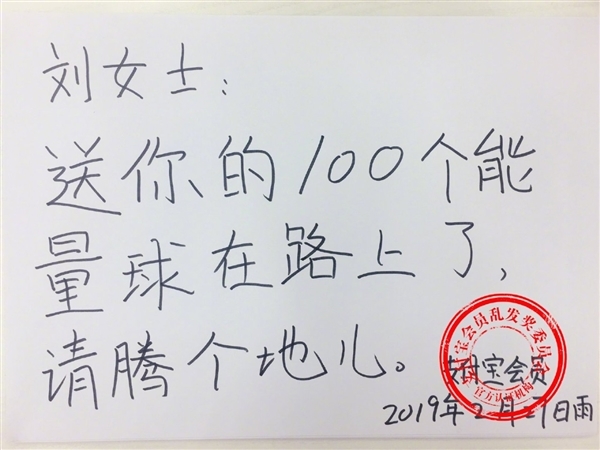 刘女士：
送你的100个能
量球在路上了，
请腾个地儿。
支付宝会员乱发奖委员会
支付宝会员
官方认证机构
2019年2月27日雨